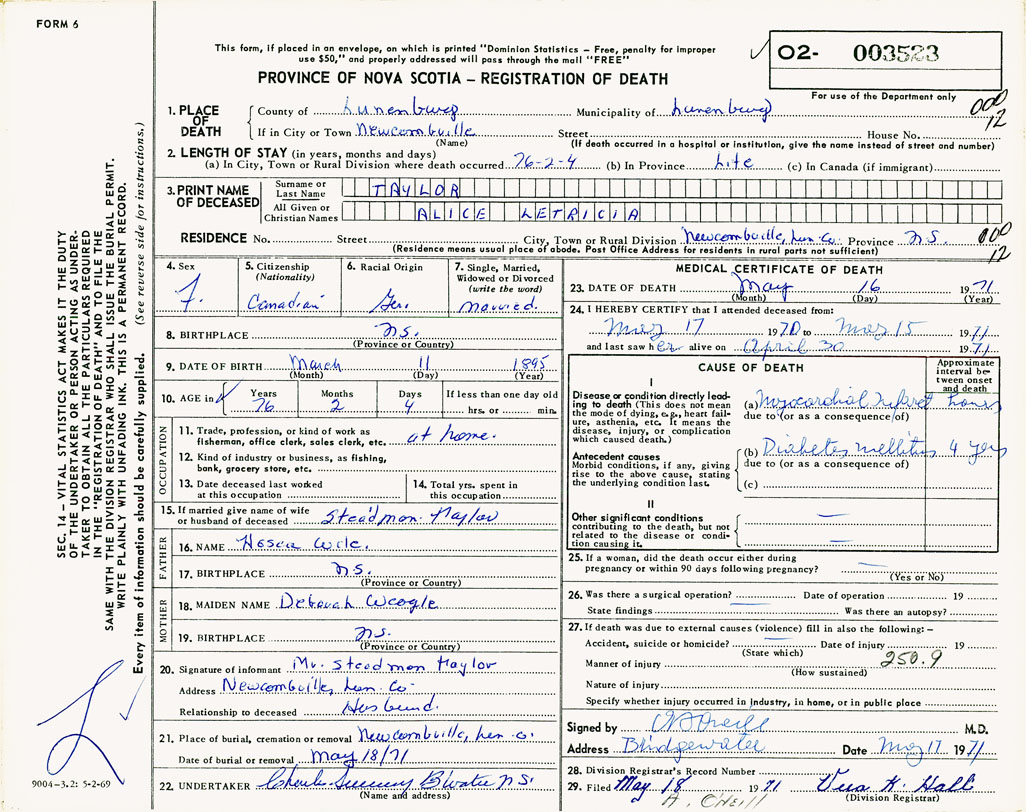 FORM 6
This form, if placed in an envelope, on which is printed "Dominion Statistics – Free, penalty for improper
use $50," and properly addressed will pass through the mail "FREE"
PROVINCE OF NOVA SCOTIA – REGISTRATION OF DEATH
O2- 003523
For use of the Department only
000
12
1. PLACE OF DEATH
County of Lunenburg Municipality of Lunenburg
If in City or Town Newcombville Street House No.
(Name) (If death occurred in a hospital or institution, give the name instead of street and number)
2. LENGTH OF STAY (in years, months and days)
(a) In City, Town or Rural Division where death occurred 76-2-4 (b) In Province Life (c) In Canada (if immigrant)
3. PRINT NAME OF DECEASED
Surname or Last Name TAYLOR
All Given or Christian Names ALICE LETRICIA
RESIDENCE No. Street City, Town or Rural Division Newcombville, Lun. Co. Province N.S.
(Residence means usual place of abode. Post Office Address for residents in rural parts not sufficient)
000
12
4. Sex F.
5. Citizenship (Nationality) Canadian
6. Racial Origin Ger.
7. Single, Married, Widowed or Divorced (write the word) married.
8. BIRTHPLACE N.S.
(Province or Country)
9. DATE OF BIRTH March 11 1895
(Month) (Day) (Year)
10. AGE in Years Months Days If less than one day old
76 2 4 hrs. or min.
OCCUPATION
11. Trade, profession, or kind of work as
fisherman, office clerk, sales clerk, etc. at home.
12. Kind of industry or business, as fishing,
bank, grocery store, etc.
13. Date deceased last worked
at this occupation
14. Total yrs. spent in
this occupation
15. If married give name of wife
or husband of deceased Steadmon Taylor
FATHER
16. NAME Hosea Wile.
17. BIRTHPLACE N.S.
(Province or Country)
MOTHER
18. MAIDEN NAME Deborah
19. BIRTHPLACE N.S.
(Province or Country)
20. Signature of informant Mr. Steadmon Taylor
Address Newcombville, Lun. Co.
Relationship to deceased Husband.
21. Place of burial, cremation or removal Newcombville, Lun. Co.
Date of burial or removal May 18/71
22. UNDERTAKER Charles B'Water N.S.
(Name and address)
MEDICAL CERTIFICATE OF DEATH
23. DATE OF DEATH May 16 1971
(Month) (Day) (Year)
24. I HEREBY CERTIFY that I attended deceased from:
May 17 1970 to May 15 1971
and last saw her alive on April 30 1971
CAUSE OF DEATH
Approximate interval between onset and death
I
Disease or condition directly lead-
ing to death (This does not mean
the mode of dying, e.g., heart fail-
ure, asthenia, etc. It means the
disease, injury, or complication
which caused death.)
(a) Myocardial Infarct hours
due to (or as a consequence of)
Antecedent causes
Morbid conditions, if any, giving
rise to the above cause, stating
the underlying condition last.
(b) Diabetes mellitus 4 years
due to (or as a consequence of)
(c)
II
Other significant conditions
contributing to the death, but not
related to the disease or condi-
tion causing it.
25. If a woman, did the death occur either during
pregnancy or within 90 days following pregnancy?
(Yes or No)
26. Was there a surgical operation? Date of operation 19
State findings Was there an autopsy?
27. If death was due to external causes (violence) fill in also the following: –
Accident, suicide or homicide? Date of injury 19
(State which)
Manner of injury 250.9
(How sustained)
Nature of injury
Specify whether injury occurred in Industry, in home, or in public place
Signed by O'Neill M.D.
Address Bridgewater Date May 17 1971
28. Division Registrar's Record Number
29. Filed May 18 1971 Vera K. Hall
A. O'NEILL Division Registrar
SEC. 14 – VITAL STATISTICS ACT MAKES IT THE DUTY
OF THE UNDERTAKER OR PERSON ACTING AS UNDER-
TAKER TO OBTAIN ALL THE PARTICULARS REQUIRED
IN THE "REGISTRATION OF DEATH" AND TO FILE THE
SAME WITH THE DIVISION REGISTRAR WHO SHALL ISSUE THE BURIAL PERMIT.
WRITE PLAINLY WITH UNFADING INK. THIS IS A PERMANENT RECORD.
Every item of information should be carefully supplied. (See reverse side for instructions.)
9004-3.2: 5-2-69